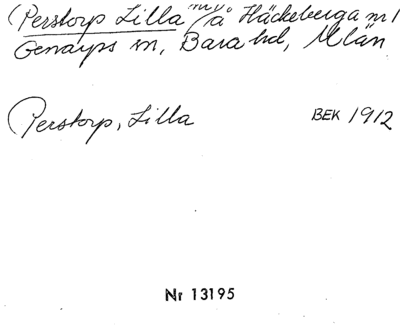 (Perstorp Lilla å Häckeberga nr 1
Genarps sn, Bara hd, Mlän
Perstorp, Lilla
BEK 1912
Nr 13195